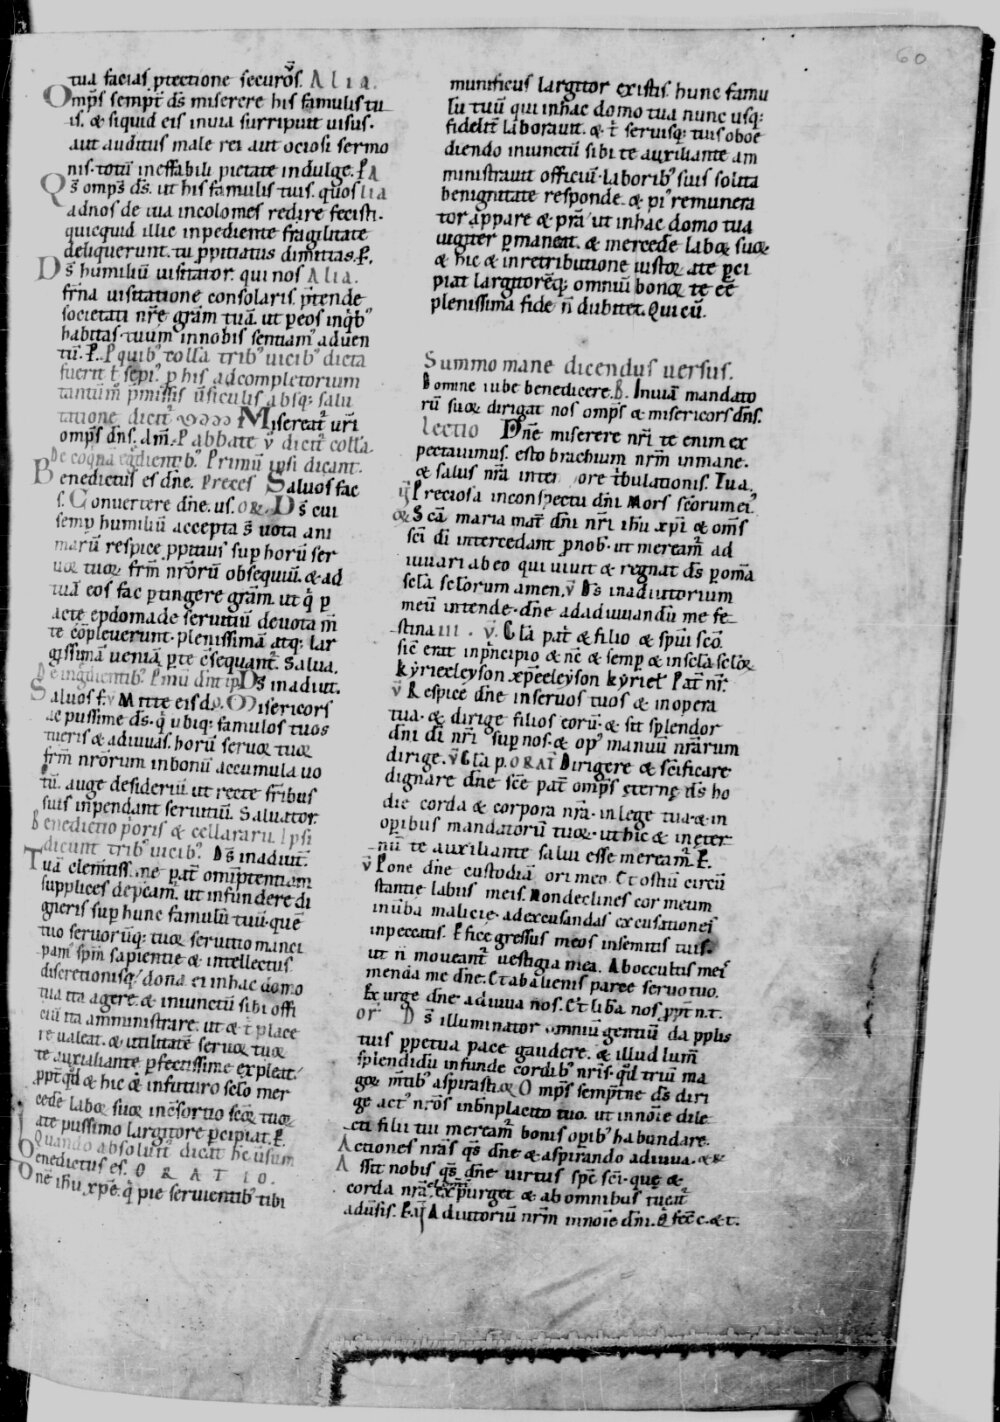 60
tua facias p̱tectione securos̊. Alia.
Omp̄s semp̄t d̄s miserere his famulis tu
is. & siquid eis inuia surripuit uisus.
aut auditus male rei aut ociosi sermo
nis. totū ineffabili pietate indulge. P̱ A
Q̄s omp̄s d̄s. ut his famulis tuis. quos lia
adnos de uia incolomes redire fecisti.
quicquid illic inpediente fragilitate
deliquerunt. tu p̱pitiatus dimittas. P̱.
D̄s humiliū uisitator. qui nos Alia.
fr̄na uisitatione consolaris. p̄tende
societati nr̄e gram̄ tuā. ut p̱eos inq̇b;
habitas. tuum̄ innobis sentiam; aduen
tū. P̱. P̱ quib; coll̄a trib; uicib; dicta
fuerit ł sepi; p̱ his adcompletorium
tantum̄m p̱missis u̅siculis absq; salu
tatione dicit̄ Misereat̄ ur̄i
omp̄s dn̄s. am̄. P̱ abbate ℣ dicit̄ coll̄a.
De coq̄na eg̱dientib;. Primū ipsi dicant.
Benedictus es dn̄e. Preces Saluos fac
s. Conuertere dn̄e. us. or̄. D̄s cui
semp̱ humiliū accepta s̄ uota ani
marū respice p̱pitius sup̱ horū ser
uoꝝ tuoꝝ frm̄ nr̄orū obsequiū. & ad
tuā eos fac p̱tingere grām. ut q̇ p̱
acte epdomade seruitiū deuota m̄
te cōpleuerunt. plenissimā atq; lar
gissimā ueniā p̱ te c̄sequant̄. Salua.
De ing̱dientib;. P̱mū dn̄t ip̄ D̄s inadiut.
Saluos f. ℣ Mitte eis d. ꝓ. Misericors
ac piissime d̄s. q̇ ubiq; famulos tuos
tueris & adiuuas. horū seruoꝝ tuoꝝ
frm̄ nr̄orum inbonū accumula uo
tū. auge desideriū. ut recte fr̄ibus
suis inpendant seruitiū. Saluator.
Benedictio p̱oris & cellararii. Ipsi
dicunt trib; uicib;. D̄s inadiut̄.
Tuā clem̄tiss. ne pat̄ omp̱tentiam
supplices dep̱cam̄. ut infundere di
gneris sup̱ hunc famulū tuū. quē
tuo seruorūq; tuoꝝ seruitio manci
pam; sp̄m sapientie & intellectus
discretionisq; dona. ei inhac domo
tua ita agere. & iniunctū sibi offi
ciū ita amministrare. ut & t̄ place
re ualeat. & utilitatē seruoꝝ tuoꝝ
te auxiliante p̱fectissime expleat.
p̱pt q̄d & hic & infuturo sc̄lo mer
cedē laboꝝ suoꝝ inc̄sortio sc̄oꝝ tuoꝝ
ate piissimo largitore p̱cipiat. P̱.
Quando absoluit̄ dicat hc̄ u̅sum
Benedictus es. ORATIO.
Dn̄e ihū xp̄e. q̇ pie seruientib; tibi
munificus largitor existis. hunc famu
lū tuū qui inhac domo tua nunc usq;
fidelit̄ laborauit. & t̄ seruisq; tuis oboe
diendo iniunctū sibi te auxiliante am
ministrauit officiū. laborib; suis solita
benignitate responde. & pi; remunera
tor appare & p̄ra. ut inhac domo tua
iugiter p̱maneat. & mercedē laboꝝ suoꝝ
& hic & inretributione iustoꝝ ate p̱ci
piat largitorēq; omniū bonoꝝ te ēē
plenissima fide n̄ dubitet. Qui cū.
Summo mane dicendus uersus.
Domine iube benedicere. B. Inuiā mandato
rū suoꝝ dirigat nos omp̄s & misericors dn̄s.
lectio Dn̄e miserere nr̄i te enim ex
pectauimus. esto brachium nr̄m inmane.
& salus nr̄a intempore t̄bulationis. Tu a.
℣ Preciosa inconspectu dn̄i Mors sc̄orum ei;
or̄ Scā maria mat̄ dn̄i nr̄i ihū xp̄i & om̄s
sc̄i dī intercedant p̱ nob; ut meream̄ ad
iuuari abeo qui uiuit & regnat d̄s p̱ om̄a
sc̄la sc̄lorum amen. ℣ D̄s inadiutorium
meū intende. dn̄e adadiuuandū me fe
stina iii. ℣. Gl̄a pat̄ & filio & sp̄ui sc̄o.
sic̄ erat inp̱ncipio & nc̄ & semp̱ & insc̄la sc̄loꝝ
kyrieeleyson xp̄eeleyson kyriel̄ Pat̄ nr̄.
℣ Respice dn̄e inseruos tuos & inopera
tua. & dirige filios eorū. & sit splendor
dn̄i dī nr̄i sup̱ nos. & op; manuū nr̄arum
dirige. ℣ Gl̄a p. ORAT̄ Dirigere & sc̄ificare
dignare dn̄e sc̄e pat̄ omp̄s ęternę d̄s ho
die corda & corpora nr̄a. in lege tua. & in
op̱ibus mandatorū tuoꝝ. ut hic & inęter
nū te auxiliante salui esse meream̄. P̱.
℣ Pone dn̄e custodiā ori meo. Et ostiū circū
stantie labiis meis. Nondeclines cor meum
inu̅ba malicie. adexcusandas excusationes
inpeccatis. P̱fice gressus meos insemitis tuis.
ut n̄ moueant̄ uestigia mea. Aboccultis meis
munda me dn̄e. Et abalienis parce seruo tuo.
Exurge dn̄e adiuua nos. Et lib̄a nos p̱pt n. t.
or̄ D̄s illuminator omniū gentiū da p̱plis
tuis p̱petua pace gaudere. & illud lum̄
splendidū infunde cordib; nr̄is. q̄d triū ma
goꝝ m̄tib; aspirasti. or̄ Omp̄s sempitn̄e d̄s diri
ge act; nr̄os inb̄nplacito tuo. ut innoīe dile
cti filii tui meream̄ bonis op̱ib; habundare.
Actiones nr̄as q̄s dn̄e & aspirando adiuua. or̄
Assit nobis q̄s dn̄e uirtus sp̄c sc̄i. que &
corda nr̄a clem̄t̄ exp̱urget & abomnibus tueat̄
adu̅sis. P̱. ℣ Adiutoriū nr̄m innoīe dn̄i. Q̇ fec̄ c. & t.